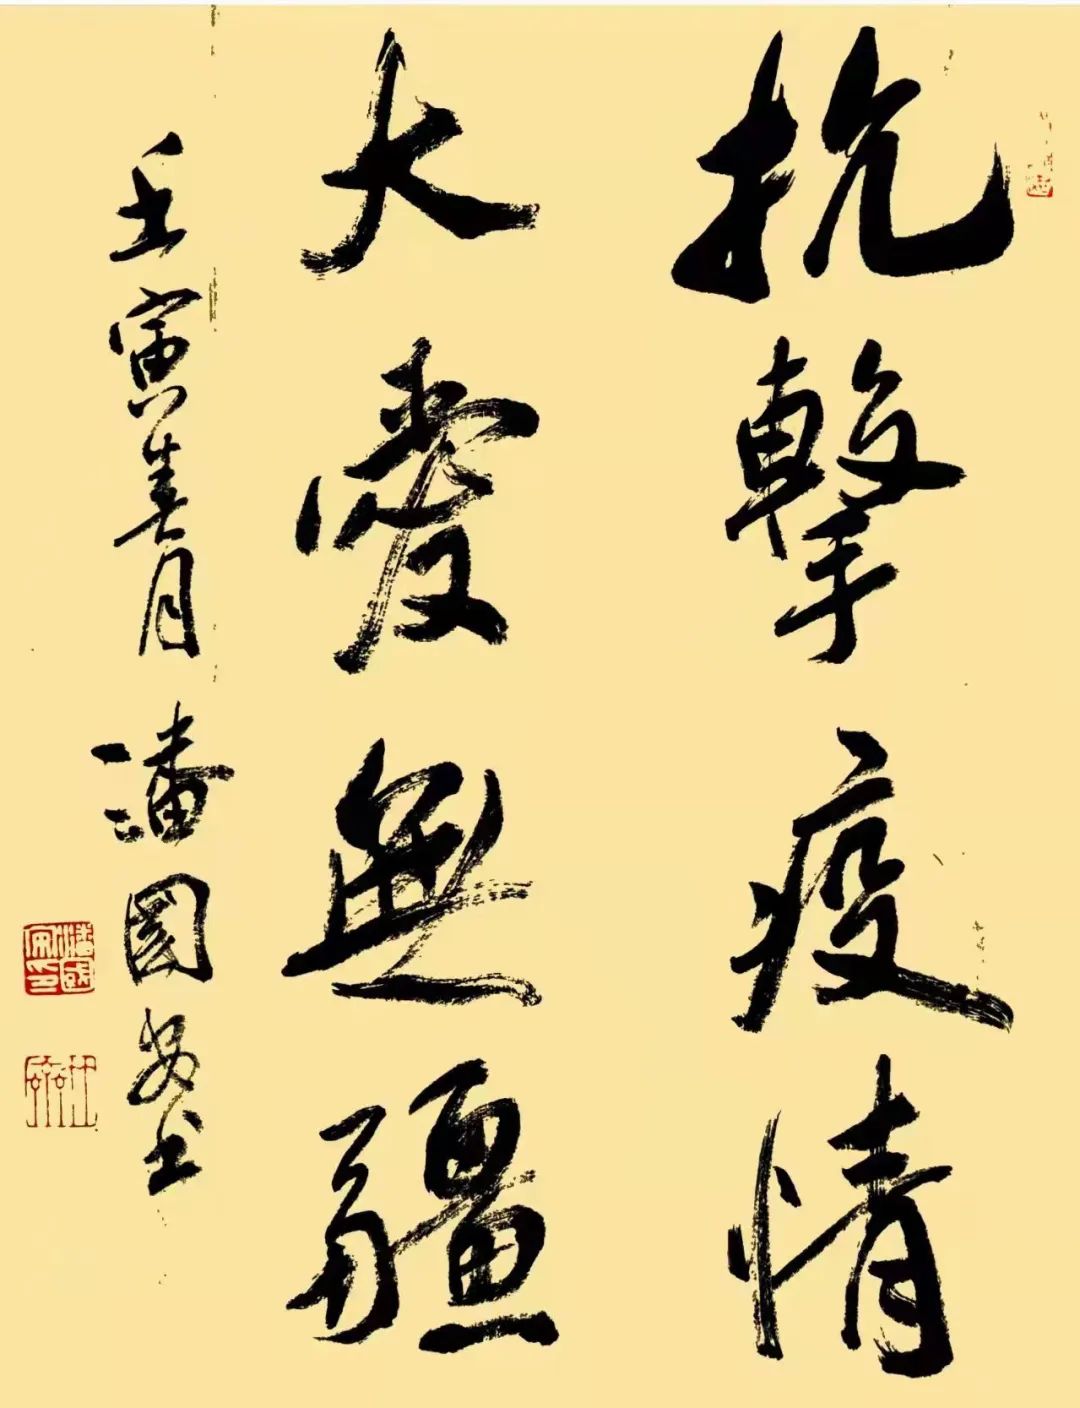 抗擊疫情
大愛無疆
壬寅春月 潘國安书